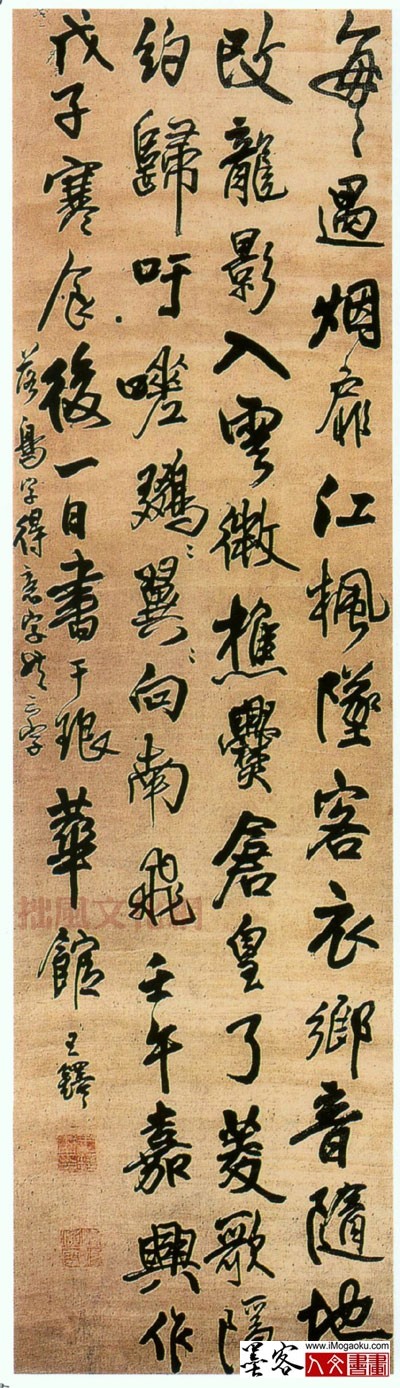 每每遇烟扉江楓墜客衣鄉音隨地
改龍影入雲微樵爨倉皇了菱歌隱
約歸吁嗟鷄翼翼向南飛壬午嘉興作
戊子寒食後一日書于琅華館王鐸
落鳥字得意字
墨客
www.iMogaoku.com
人文書畫
拙風文化网